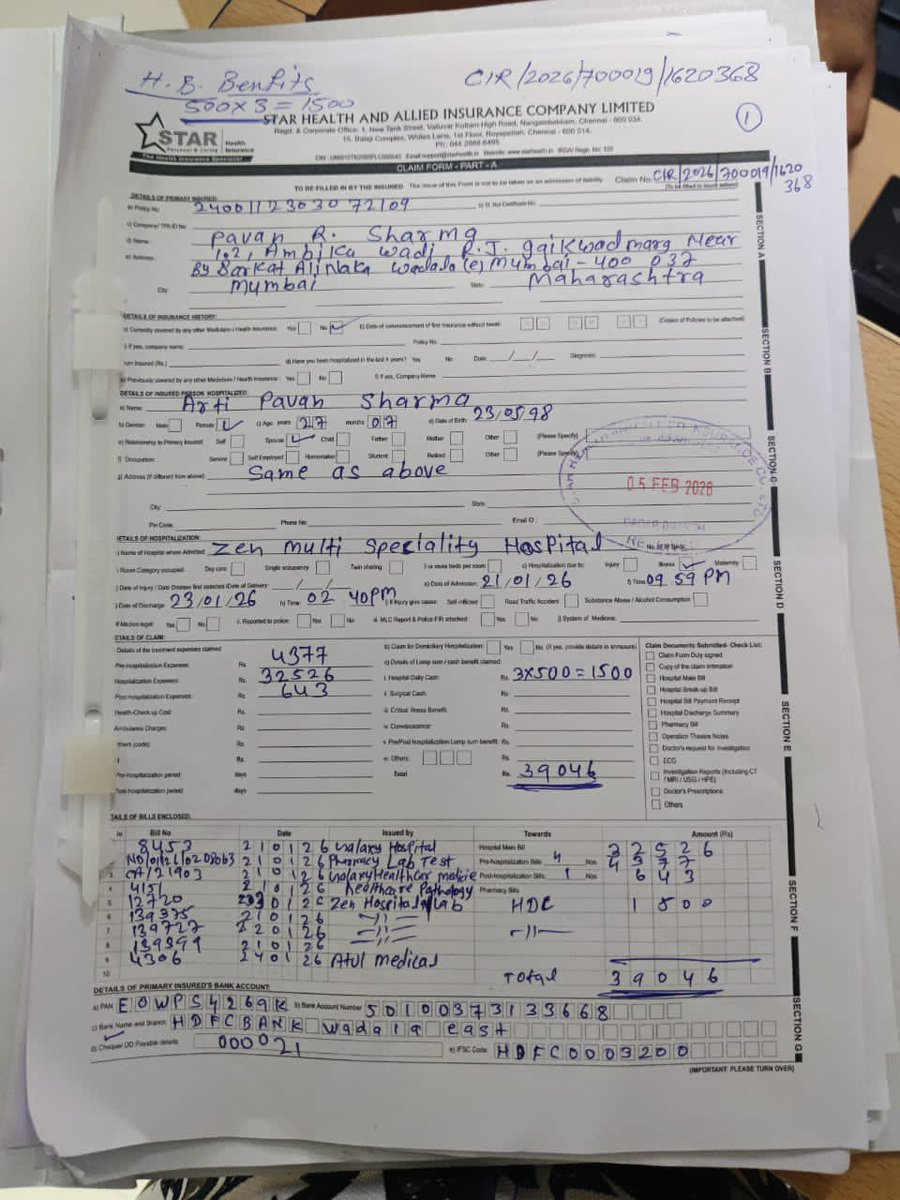 H. B. Benfits
500 x 3 = 1500
CIR/2026/700019/1620368
1
STAR HEALTH AND ALLIED INSURANCE COMPANY LIMITED
Regd. & Corporate Office: 1, New Tank Street, Valluvar Kottam High Road, Nungambakkam, Chennai - 600 034.
15, Balaji Complex, Whites Lane, 1st Floor, Royapettah, Chennai - 600 014.
STAR Health Insurance
Personal & Caring
The Health Insurance Specialist
CLAIM FORM - PART - A
TO BE FILLED IN BY THE INSURED The issue of this Form is not to be taken as an admission of liability Claim No. CIR/2026/700019/1620
368
DETAILS OF PRIMARY INSURED
a) Policy No. 24001123030 72109
c) Company/ TPA ID No.
d) Name : Pavan R. Sharma
e) Address : 102, Ambika wadi R.J. gaikwad marg Near
By Barkat Ali Naka wadala (e) Mumbai - 400 037
City Mumbai State Maharashtra
SECTION A
DETAILS OF INSURANCE HISTORY:
a) Currently covered by any other Mediclaim / Health Insurance: Yes No b) Date of commencement of first Insurance without break (Copies of Policies to be attached)
If yes, company name: Policy No.
Sum Insured (Rs.) d) Have you been hospitalized in the last 4 years? Yes No Date: Diagnosis:
e) Previously covered by any other Mediclaim / Health Insurance : Yes No f) If yes, Company Name
SECTION B
DETAILS OF INSURED PERSON HOSPITALIZED:
a) Name: Arti Pavan Sharma
b) Gender: Male Female c) Age: years 27 months 07 d) Date of Birth 23/05/98
e) Relationship to Primary Insured: Self Spouse Child Father Mother Other (Please Specify)
f) Occupation: Service Self Employed Homemaker Student Retired Other (Please Specify)
g) Address (if different from above) Same as above
City State
Pin Code Phone No Email ID :
05 FEB 2026
SECTION C
DETAILS OF HOSPITALIZATION:
Name of Hospital where Admitted: Zen multi Speciality Hospital
Room Category occupied: Day care Single occupancy Twin sharing 3 or more beds per room c) Hospitalization due to: Injury Illness Maternity
Date of Injury / Date Disease first detected /Date of Delivery e) Date of Admission: 21/01/26 f) Time 09 59 PM
Date of Discharge 23/01/26 h) Time: 02 40PM If Injury give cause: Self inflicted Road Traffic Accident Substance Abuse / Alcohol Consumption
If Medico legal: Yes No Reported to police: Yes No MLC Report & Police FIR attached Yes No j) System of Medicine:
SECTION D
DETAILS OF CLAIM:
Details of the treatment expenses claimed b) Claim for Domiciliary Hospitalization Yes No (If yes, provide details in annexure)
Pre-hospitalization Expenses: 4377 c) Details of Lump sum / cash benefit claimed:
Hospitalization Expenses: Rs. 32526 i. Hospital Daily Cash: Rs. 3x500=1500
Post-hospitalization Expenses: Rs. 643 ii. Surgical Cash: Rs.
Health-Check up Cost Rs. iii. Critical Illness Benefit: Rs.
Ambulance Charges Rs. iv. Convalescence: Rs.
Others (code): Rs. v. Pre/Post hospitalization Lump sum benefit: Rs.
Rs. vi. Others:
Pre-hospitalization period days Total Rs. 39046
Post-hospitalization period: days
Claim Documents Submitted- Check List:
Claim Form Duly signed
Copy of the claim intimation
Hospital Main Bill
Hospital Break-up Bill
Hospital Bill Payment Receipt
Hospital Discharge Summary
Pharmacy Bill
Operation Theatre Notes
Doctor's request for investigation
ECG
Investigation Reports (Including CT / MRI / USG / HPE)
Doctor's Prescriptions
Others
SECTION E
DETAILS OF BILLS ENCLOSED:
Bill No Date Issued by Towards Amount (Rs)
8453 210126 Hospital Hospital Main Bill 32526
210126 Pharmacy Lab Test Pre-hospitalization Bills: 4 Nos 4377
CA/21903 210126 Post-hospitalization Bills: 1 Nos 643
4151 210126 healthcare Pathology Pharmacy Bills
5 12720 Zen Hospital Lab HDC 1500
6 139375 210126 -//-
7 139727 220126 -//- -//-
8 139399 210126
9 4306 240126 Atul medical
10 Total 39046
SECTION F
DETAILS OF PRIMARY INSURED'S BANK ACCOUNT:
a) PAN EOWPS4269K b) Bank Account Number 50100373133668
c) Bank Name and Branch HDFC BANK wadala east
d) Cheque/ DD Payable details: 000021 e) IFSC Code: HDFC0003200
SECTION G
(IMPORTANT: PLEASE TURN OVER)